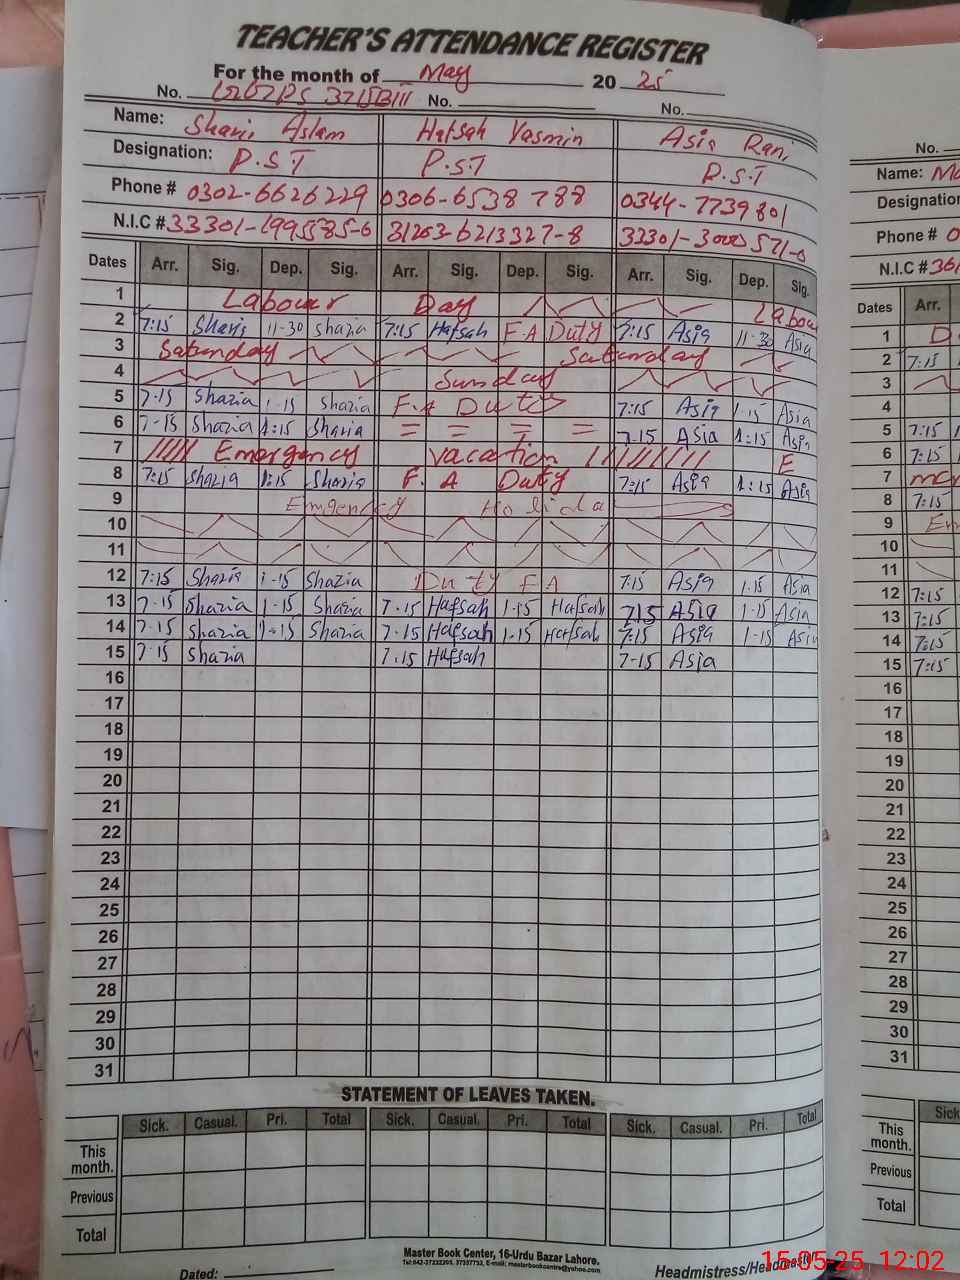 TEACHER'S ATTENDANCE REGISTER
For the month of May 20 25
No. No. No.
Name: Aslam Hafsah Yasmin Asia Rani
Designation: P.S.T P.S.T P.S.T
Phone # 0302-6626229 0306-6538788 0344-7739801
N.I.C # 31203-6213327-8
Dates Arr. Sig. Dep. Sig. Arr. Sig. Dep. Sig. Arr. Sig. Dep. Sig.
1 Labour Day Labou
2 7:15 11-30 Shazia 7:15 Hafsah F A Duty 7:15 Asia 11-30 Asia
3 Saturday Saturday
4 Sunday
5 7-15 Shazia 1-15 Shazia F.A Duty 7:15 Asia 1-15 Asia
6 7-15 Shazia 1:15 Shazia = = = = 7.15 Asia 1:15 Asia
7 Emergency vacation E
8 7:15 Shazia 1:15 Shazia F. A Duty 7:15 Asia 1:15 Asia
9 Emgency Holida
10
11
12 7:15 Shazia 1-15 Shazia Duty F A 7:15 Asia 1.15 Asia
13 7-15 Shazia 1-15 Shazia 7.15 Hafsah 1-15 Hafsah 7.15 Asia 1-15 Asia
14 7-15 Shazia 1-15 Shazia 7.15 Hafsah 1.15 Hafsah 7:15 Asia 1-15 Asia
15 7-15 Shazia 7.15 Hafsah 7-15 Asia
16
17
18
19
20
21
22
23
24
25
26
27
28
29
30
31
STATEMENT OF LEAVES TAKEN.
Sick. Casual. Pri. Total Sick. Casual. Pri. Total Sick. Casual. Pri. Total
This month.
Previous
Total
Master Book Center, 16-Urdu Bazar Lahore.
Dated: Headmistress/Headmaster
No.
Name: Ma
Designation
Phone # 0
N.I.C #
Dates Arr.
1 D
2 7:15
3
4
5 7:15
6 7:15
7
8 7:15
9 Em
10
11
12 7:15
13 7:15
14 7:15
15 7:15
16
17
18
19
20
21
22
23
24
25
26
27
28
29
30
31
Sick
This month.
Previous
Total
15-05-25 12:02